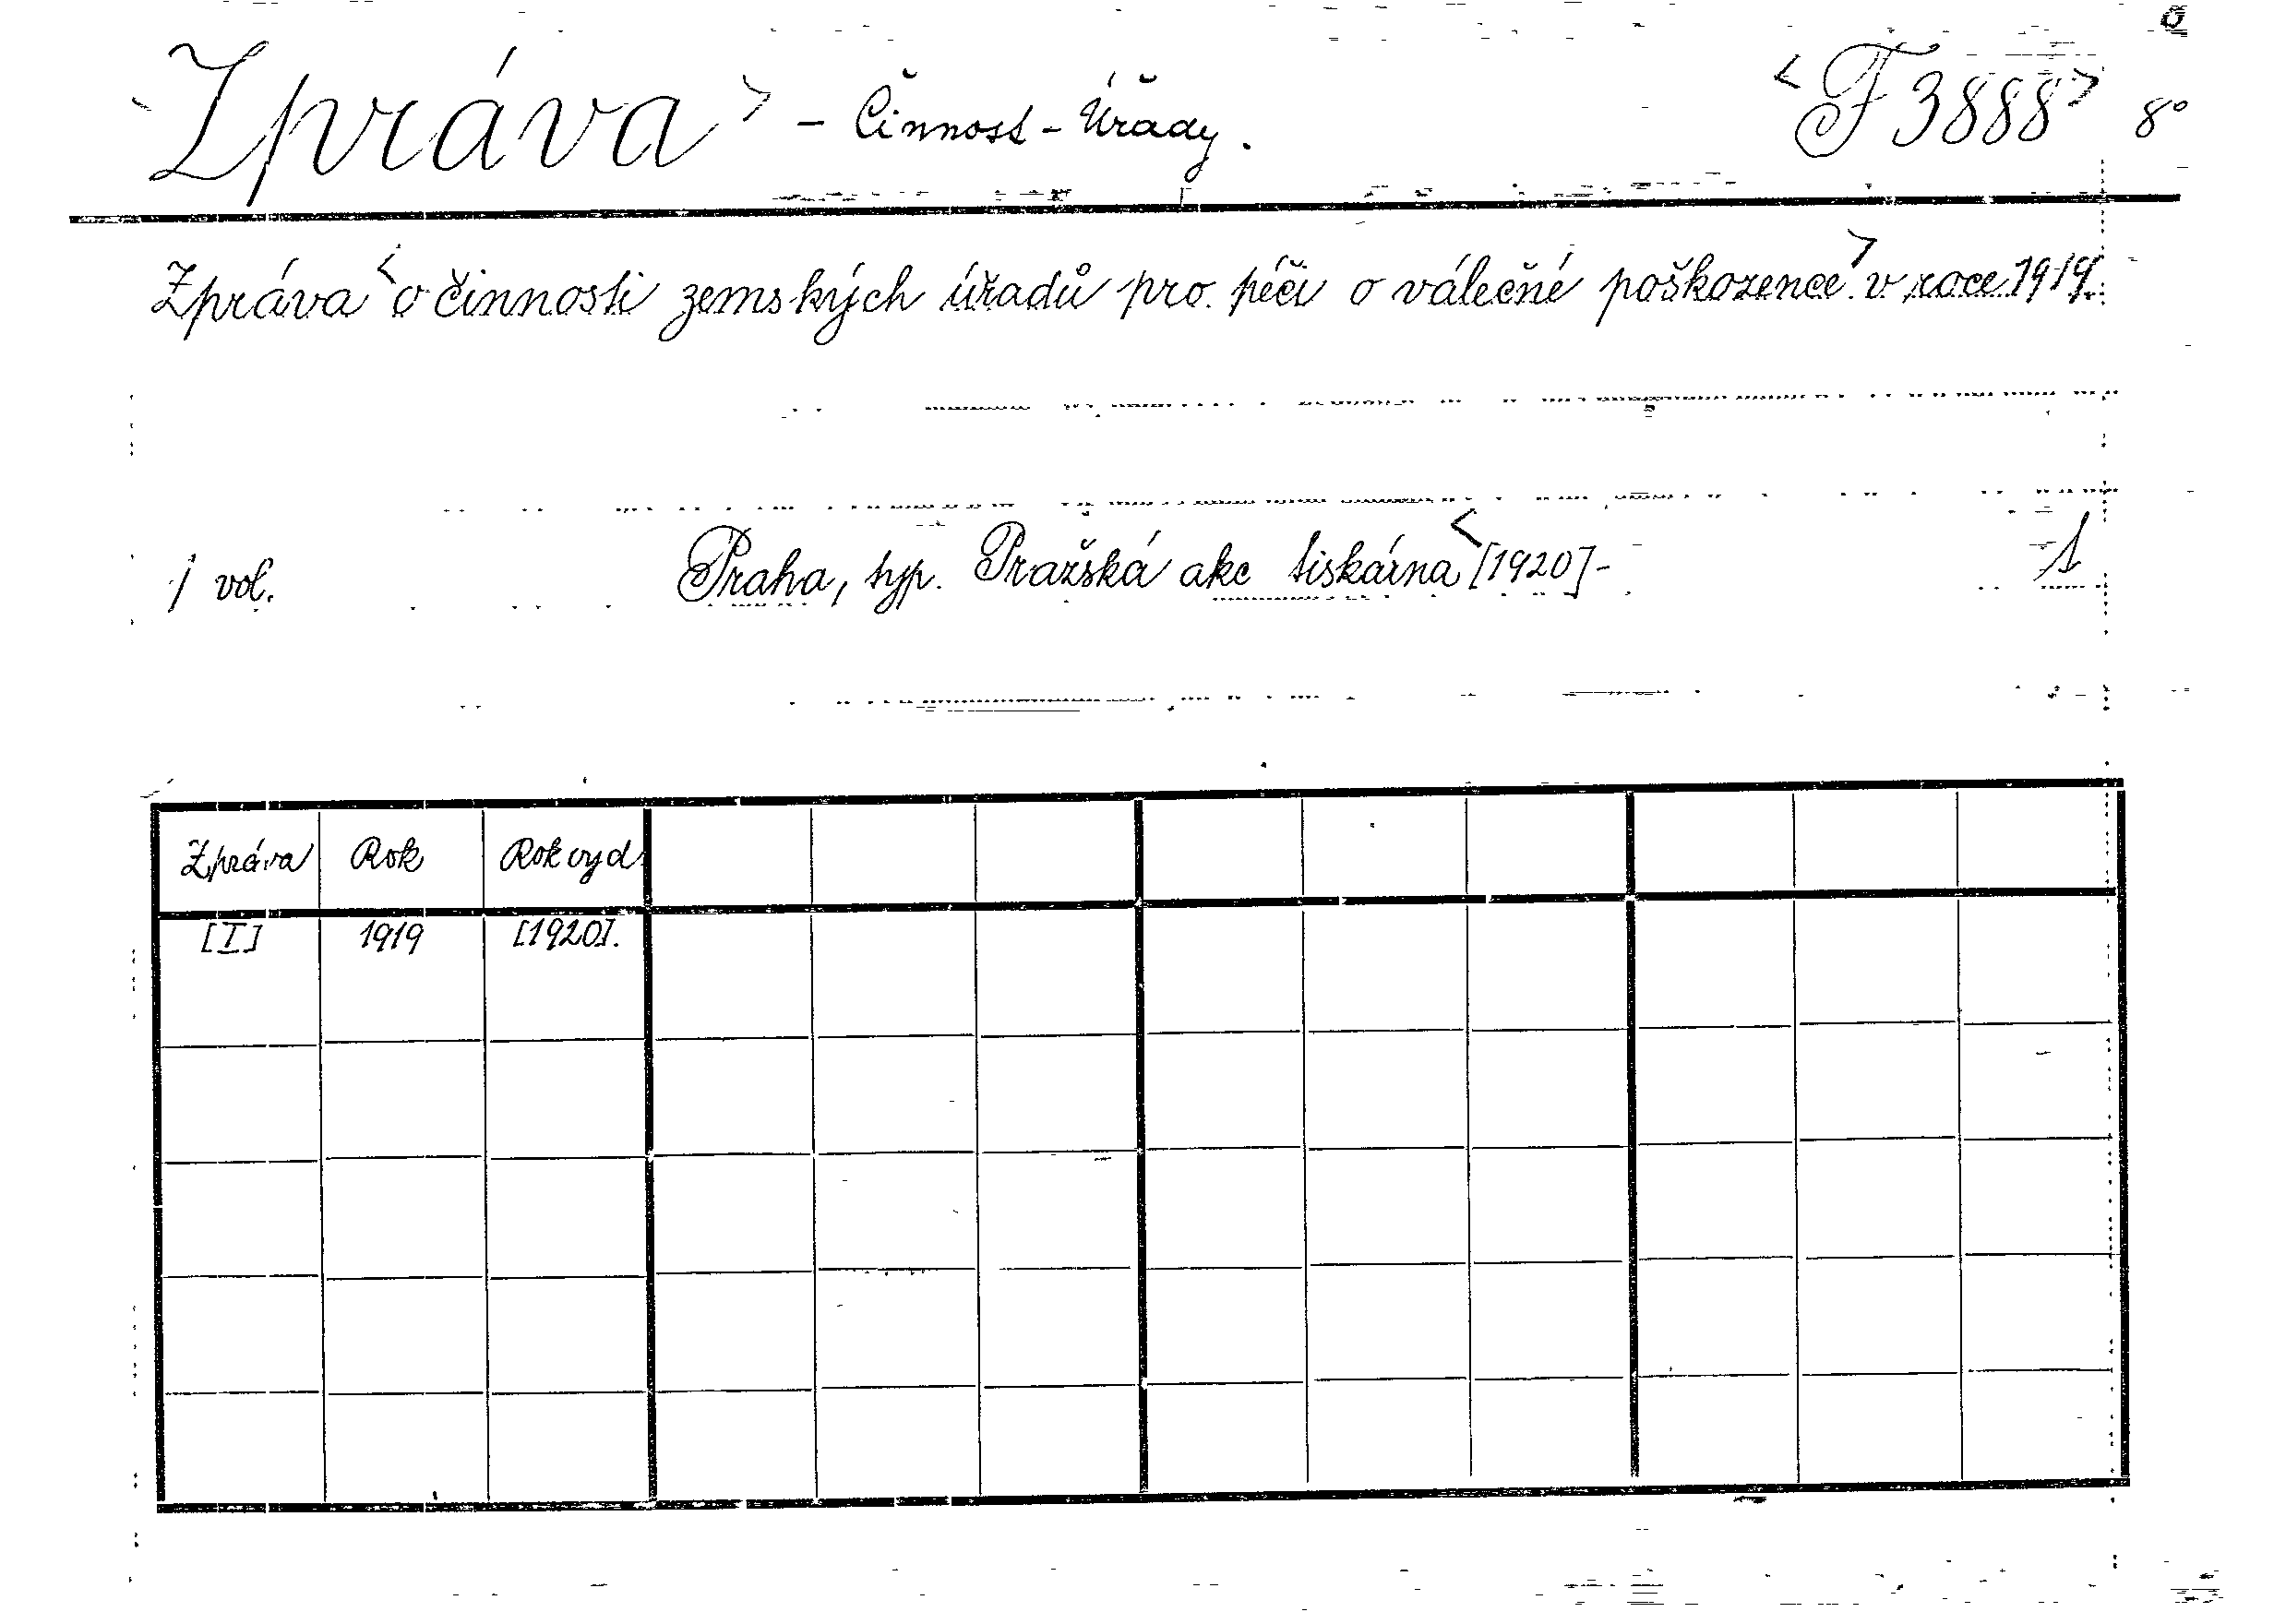 Zpráva> - Činnost - Úřady. <F 3888> 8°
Zpráva <o činnosti zemských úřadů pro péči o válečné poškozence> v roce 1919.
1 vol. Praha, typ. Pražská akc tiskárna <[1920]- 1
Zpráva Rok Rok vyd
[I] 1919 [1920].